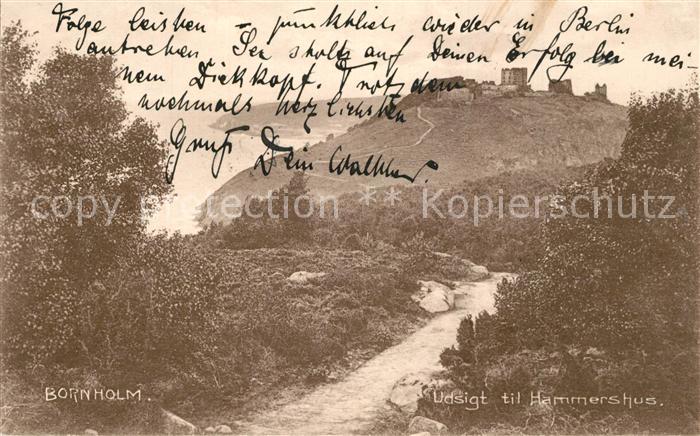 Folge leisten - pünktlich wieder in Berlin
antreten. Sei stolz auf Deinen Erfolg bei mei-
nem Dickkopf. Trotzdem
nochmals herzlichsten
Gruß
Dein Walther.
copy protection Kopierschutz
BORNHOLM.
Udsigt til Hammershus.